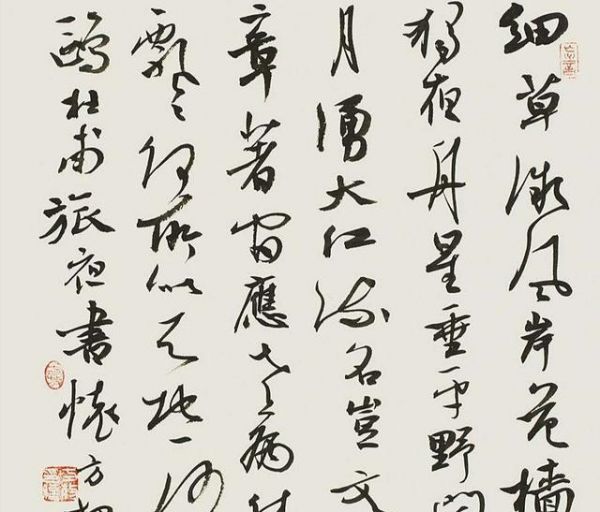 細草微風岸危檣
獨夜舟星垂平野闊
月湧大江流名豈文
章著官應老病休
飄々何所似天地一沙
鷗杜甫旅夜書懷方